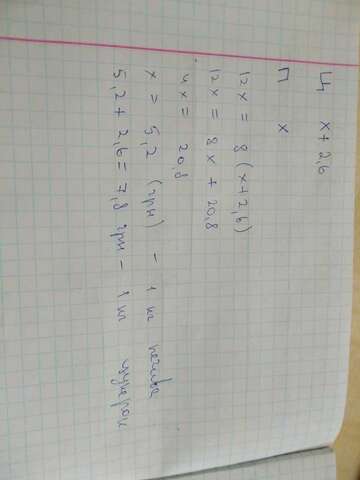 Ц x + 2,6
П x
12x = 8 (x+2,6)
12x = 8x + 20,8
4x = 20,8
x = 5,2 (грн) - 1 кг печива
5,2 + 2,6 = 7,8 грн - 1 кг цукерок